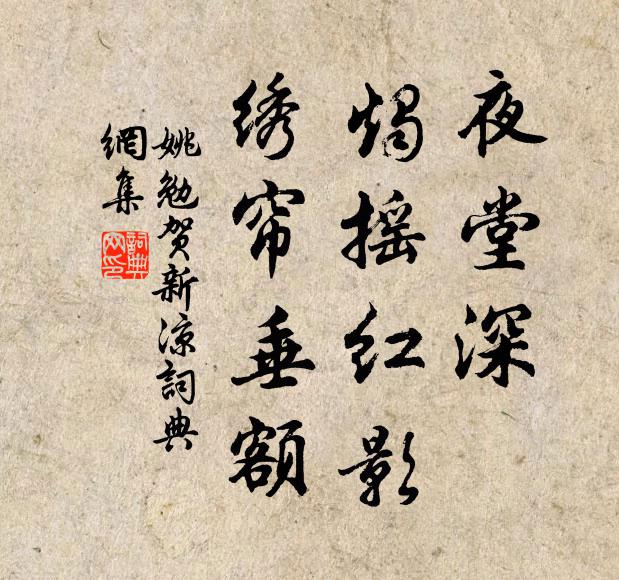 夜堂深
烛摇红影
绣帘垂额
姚勉贺新凉詞典
網集
詞典
网印